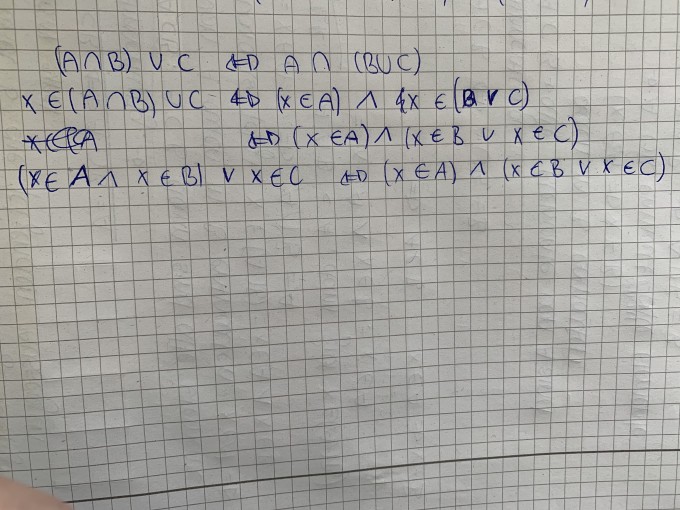 (A∩B) ∪ C ⇔ A ∩ (B∪C)
x ∈ (A∩B) ∪ C ⇔ (x ∈ A) ∧ x ∈ (B ∨ C)
⇔ (x ∈ A) ∧ (x ∈ B ∨ x ∈ C)
(x ∈ A ∧ x ∈ B) ∨ x ∈ C ⇔ (x ∈ A) ∧ (x ∈ B ∨ x ∈ C)